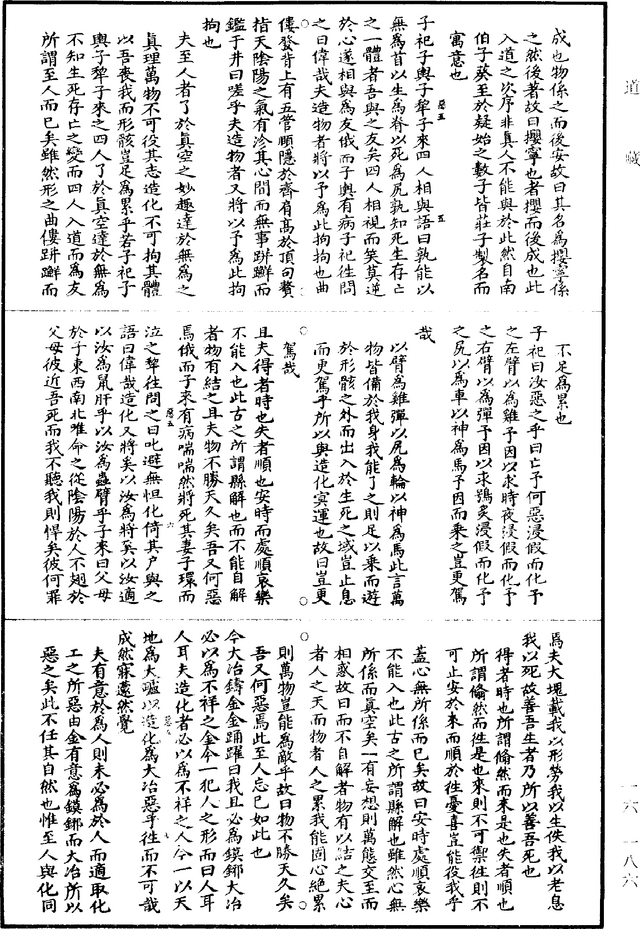 道藏
成也物係之而後安故曰其名為攖寧係
之然後著故曰攖寧也者攖而後成也此
入道之次序非真人不能與於此然自南
伯子葵至於疑始之數子皆莊子製名而
寓意也
子祀子輿子犁子來四人相與語曰孰能以
無為首以生為脊以死為尻孰知死生存亡
之一體者吾與之友矣四人相視而笑莫逆
於心遂相與為友俄而子輿有病子祀往問
之曰偉哉夫造物者將以予為此拘拘也曲
僂發背上有五管頤隱於齊肩高於頂句贅
指天陰陽之氣有沴其心間而無事跰𨇤而
鑑于井曰嗟乎夫造物者又將以予為此拘
拘也
夫至人者了於真空之妙趣達於無為之
真理萬物不可役其志造化不可拘其體
以吾喪我而形骸豈足為累乎若子祀子
輿子犁子來之四人了於真空達於無為
不知生死存亡之變而四人入道而為友
所謂至人而已矣雖然形之曲僂跰𨇤而
不足為累也
子祀曰汝惡之乎曰亡予何惡浸假而化予
之左臂以為雞予因以求時夜浸假而化予
之右臂以為彈予因以求鴞炙浸假而化予
之尻以為車以神為馬予因而乘之豈更駕
哉
以臂為雞彈以尻為輪以神為馬此言萬
物皆備於我身我能了之則足以乘而遊
於形骸之外而出入於生死之域豈止息
而更駕乎所以與造化冥運也故曰豈更
駕哉
且夫得者時也失者順也安時而處順哀樂
不能入也此古之所謂縣解也而不能自解
者物有結之且夫物不勝天久矣吾又何惡
焉俄而子來有病喘喘然將死其妻子環而
泣之犂往問之曰叱避無怛化倚其户與之
語曰偉哉造化又將奚以汝為將奚以汝適
以汝為鼠肝乎以汝為蟲臂乎子來曰父母
於子東西南北唯命之從陰陽於人不翅於
父母彼近吾死而我不聽我則悍矣彼何罪
焉夫大塊載我以形勞我以生佚我以老息
我以死故善吾生者乃所以善吾死也
得者時也所謂翛然而來是也失者順也
所謂翛然而往是也來則不可禦往則不
可止安於來而順於往憂喜豈能役我乎
蓋心無所係而已矣故曰安時處順哀樂
不能入也此古之所謂縣解也雖然心無
所係而真空矣一有妄想則萬態交至而
相惑故曰而不自解者物有以結之夫心
者人之天而物者人之累我能固心絶累
則萬物豈能為敵乎故曰物不勝天久矣
吾又何惡焉此至人忘已如此也
今大冶鑄金金踊躍曰我且必為鏌鋣大冶
必以為不祥之金今一犯人之形而曰人耳
人耳夫造化者必以為不祥之人今一以天
地為大鑪以造化為大冶惡乎徃而不可哉
成然寐遽然覺
夫有意於為人則未必為於人而適取化
工之所惡由金有意為鏌鋣而大冶所以
惡之矣此不任其自然也惟至人與化同
一六-一八六